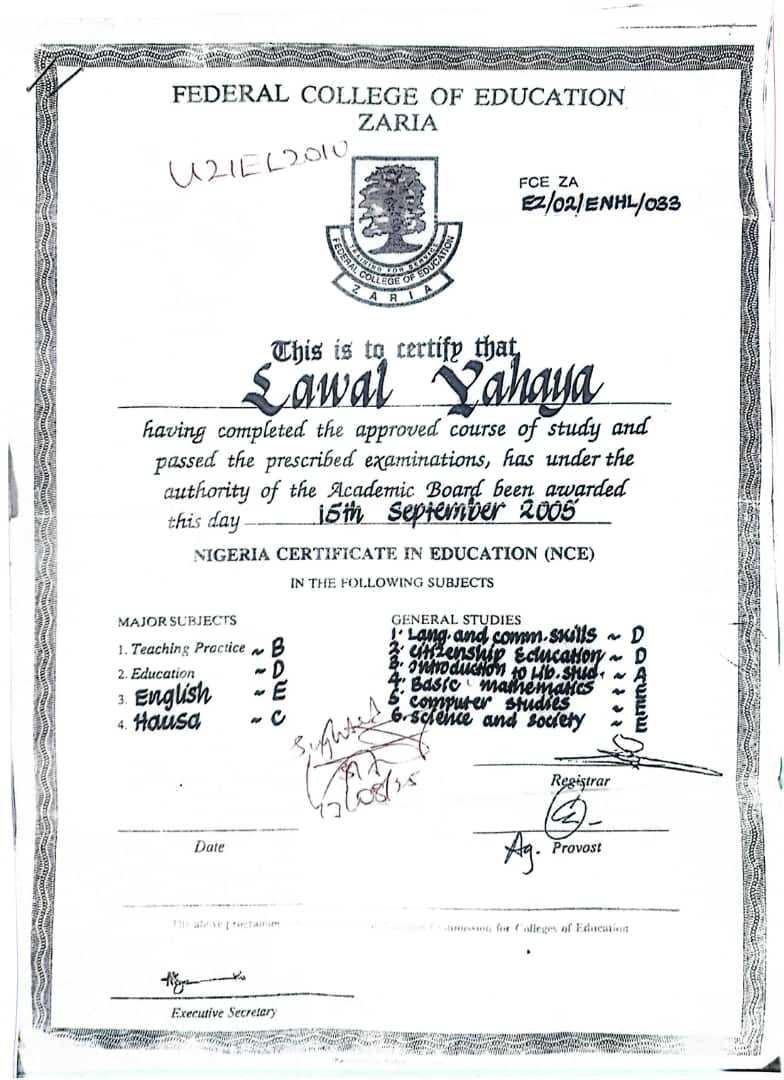 FEDERAL COLLEGE OF EDUCATION
ZARIA
U21EL2010
FCE ZA
EZ/02/ENHL/033
TRAINING FOR SERVICE
FEDERAL COLLEGE OF EDUCATION
ZARIA
This is to certify that
Lawal Yahaya
having completed the approved course of study and
passed the prescribed examinations, has under the
authority of the Academic Board been awarded
this day 15th September 2005
NIGERIA CERTIFICATE IN EDUCATION (NCE)
IN THE FOLLOWING SUBJECTS
MAJOR SUBJECTS
1. Teaching Practice ~ B
2. Education ~ D
3. English ~ E
4. Hausa ~ C
GENERAL STUDIES
1. Lang. and comm. skills ~ D
2. citizenship Education ~ D
3. introduction to Lib. stud. ~ A
4. Basic mathematics ~ E
5. computer studies ~ E
6. science and society ~ E
Sighted
Registrar
Date
Ag. Provost
The above programme Commission for Colleges of Education
Executive Secretary